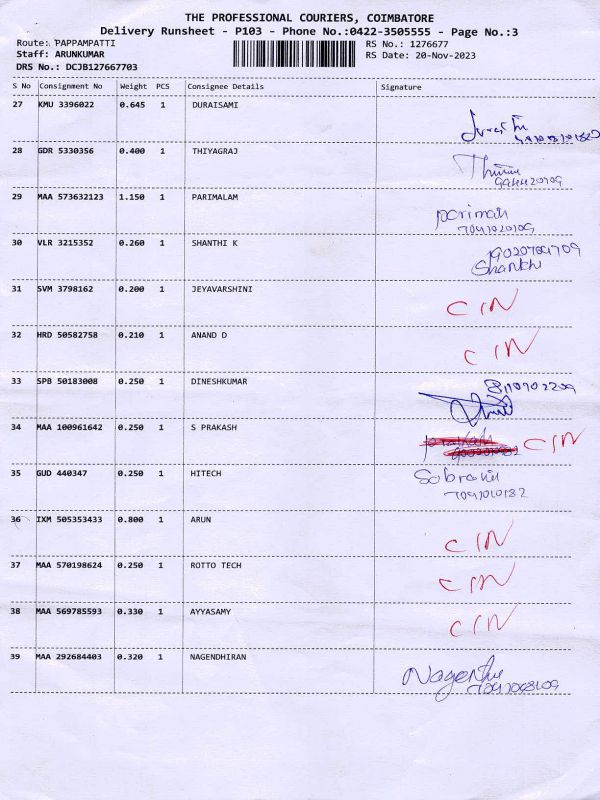 THE PROFESSIONAL COURIERS, COIMBATORE
Delivery Runsheet - P103 - Phone No.:0422-3505555 - Page No.:3
Route: PAPPAMPATTI RS No.: 1276677
Staff: ARUNKUMAR RS Date: 20-Nov-2023
DRS No.: DCJB127667703
S No Consignment No Weight PCS Consignee Details Signature
27 KMU 3396022 0.645 1 DURAISAMI
28 GDR 5330356 0.400 1 THIYAGRAJ
29 MAA 573632123 1.150 1 PARIMALAM
7041020109
30 VLR 3215352 0.260 1 SHANTHI K
Shanthi
31 SVM 3798162 0.200 1 JEYAVARSHINI CIN
32 HRD 50582758 0.210 1 ANAND D CIN
33 SPB 50183008 0.250 1 DINESHKUMAR
34 MAA 100961642 0.250 1 S PRAKASH CIN
35 GUD 440347 0.250 1 HITECH
36 IXM 505353433 0.800 1 ARUN CIN
37 MAA 570198624 0.250 1 ROTTO TECH CIN
38 MAA 569785593 0.330 1 AYYASAMY CIN
39 MAA 292684403 0.320 1 NAGENDHIRAN